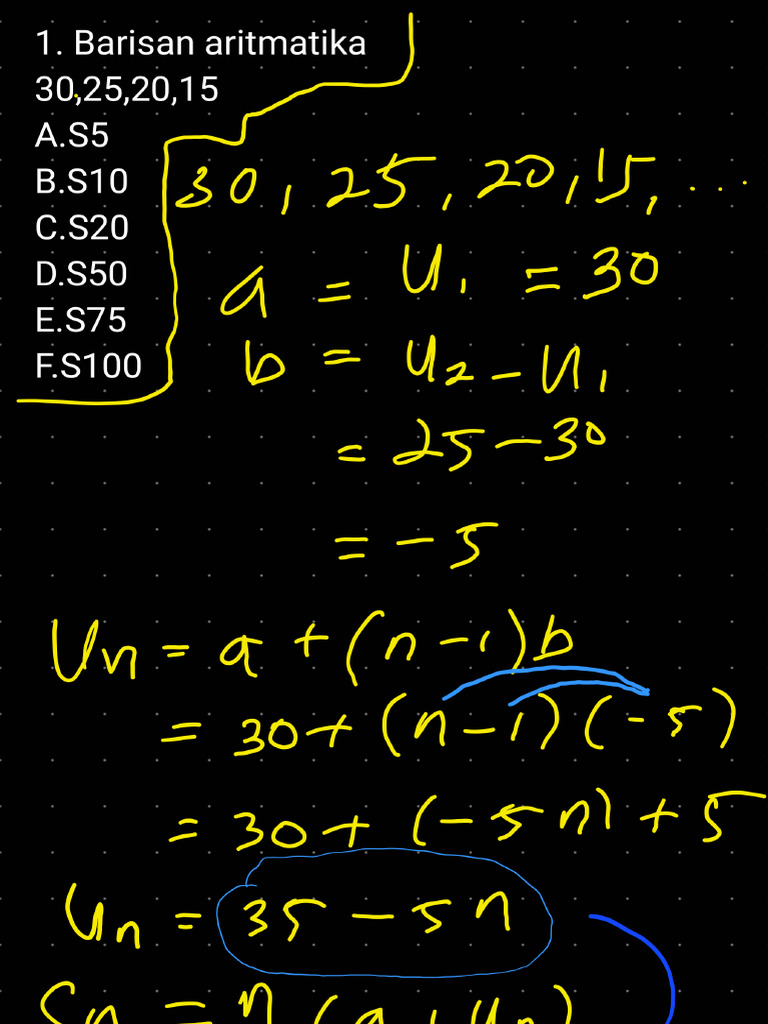 1. Barisan aritmatika
30,25,20,15
A.S5
B.S10
C.S20
D.S50
E.S75
F.S100
30, 25, 20, 15, ...
a = U₁ = 30
b = U₂ - U₁
= 25 - 30
= -5
Un = a + (n-1)b
= 30 + (n-1)(-5)
= 30 + (-5n) + 5
Un = 35 - 5n
Sn = n (a + Un)